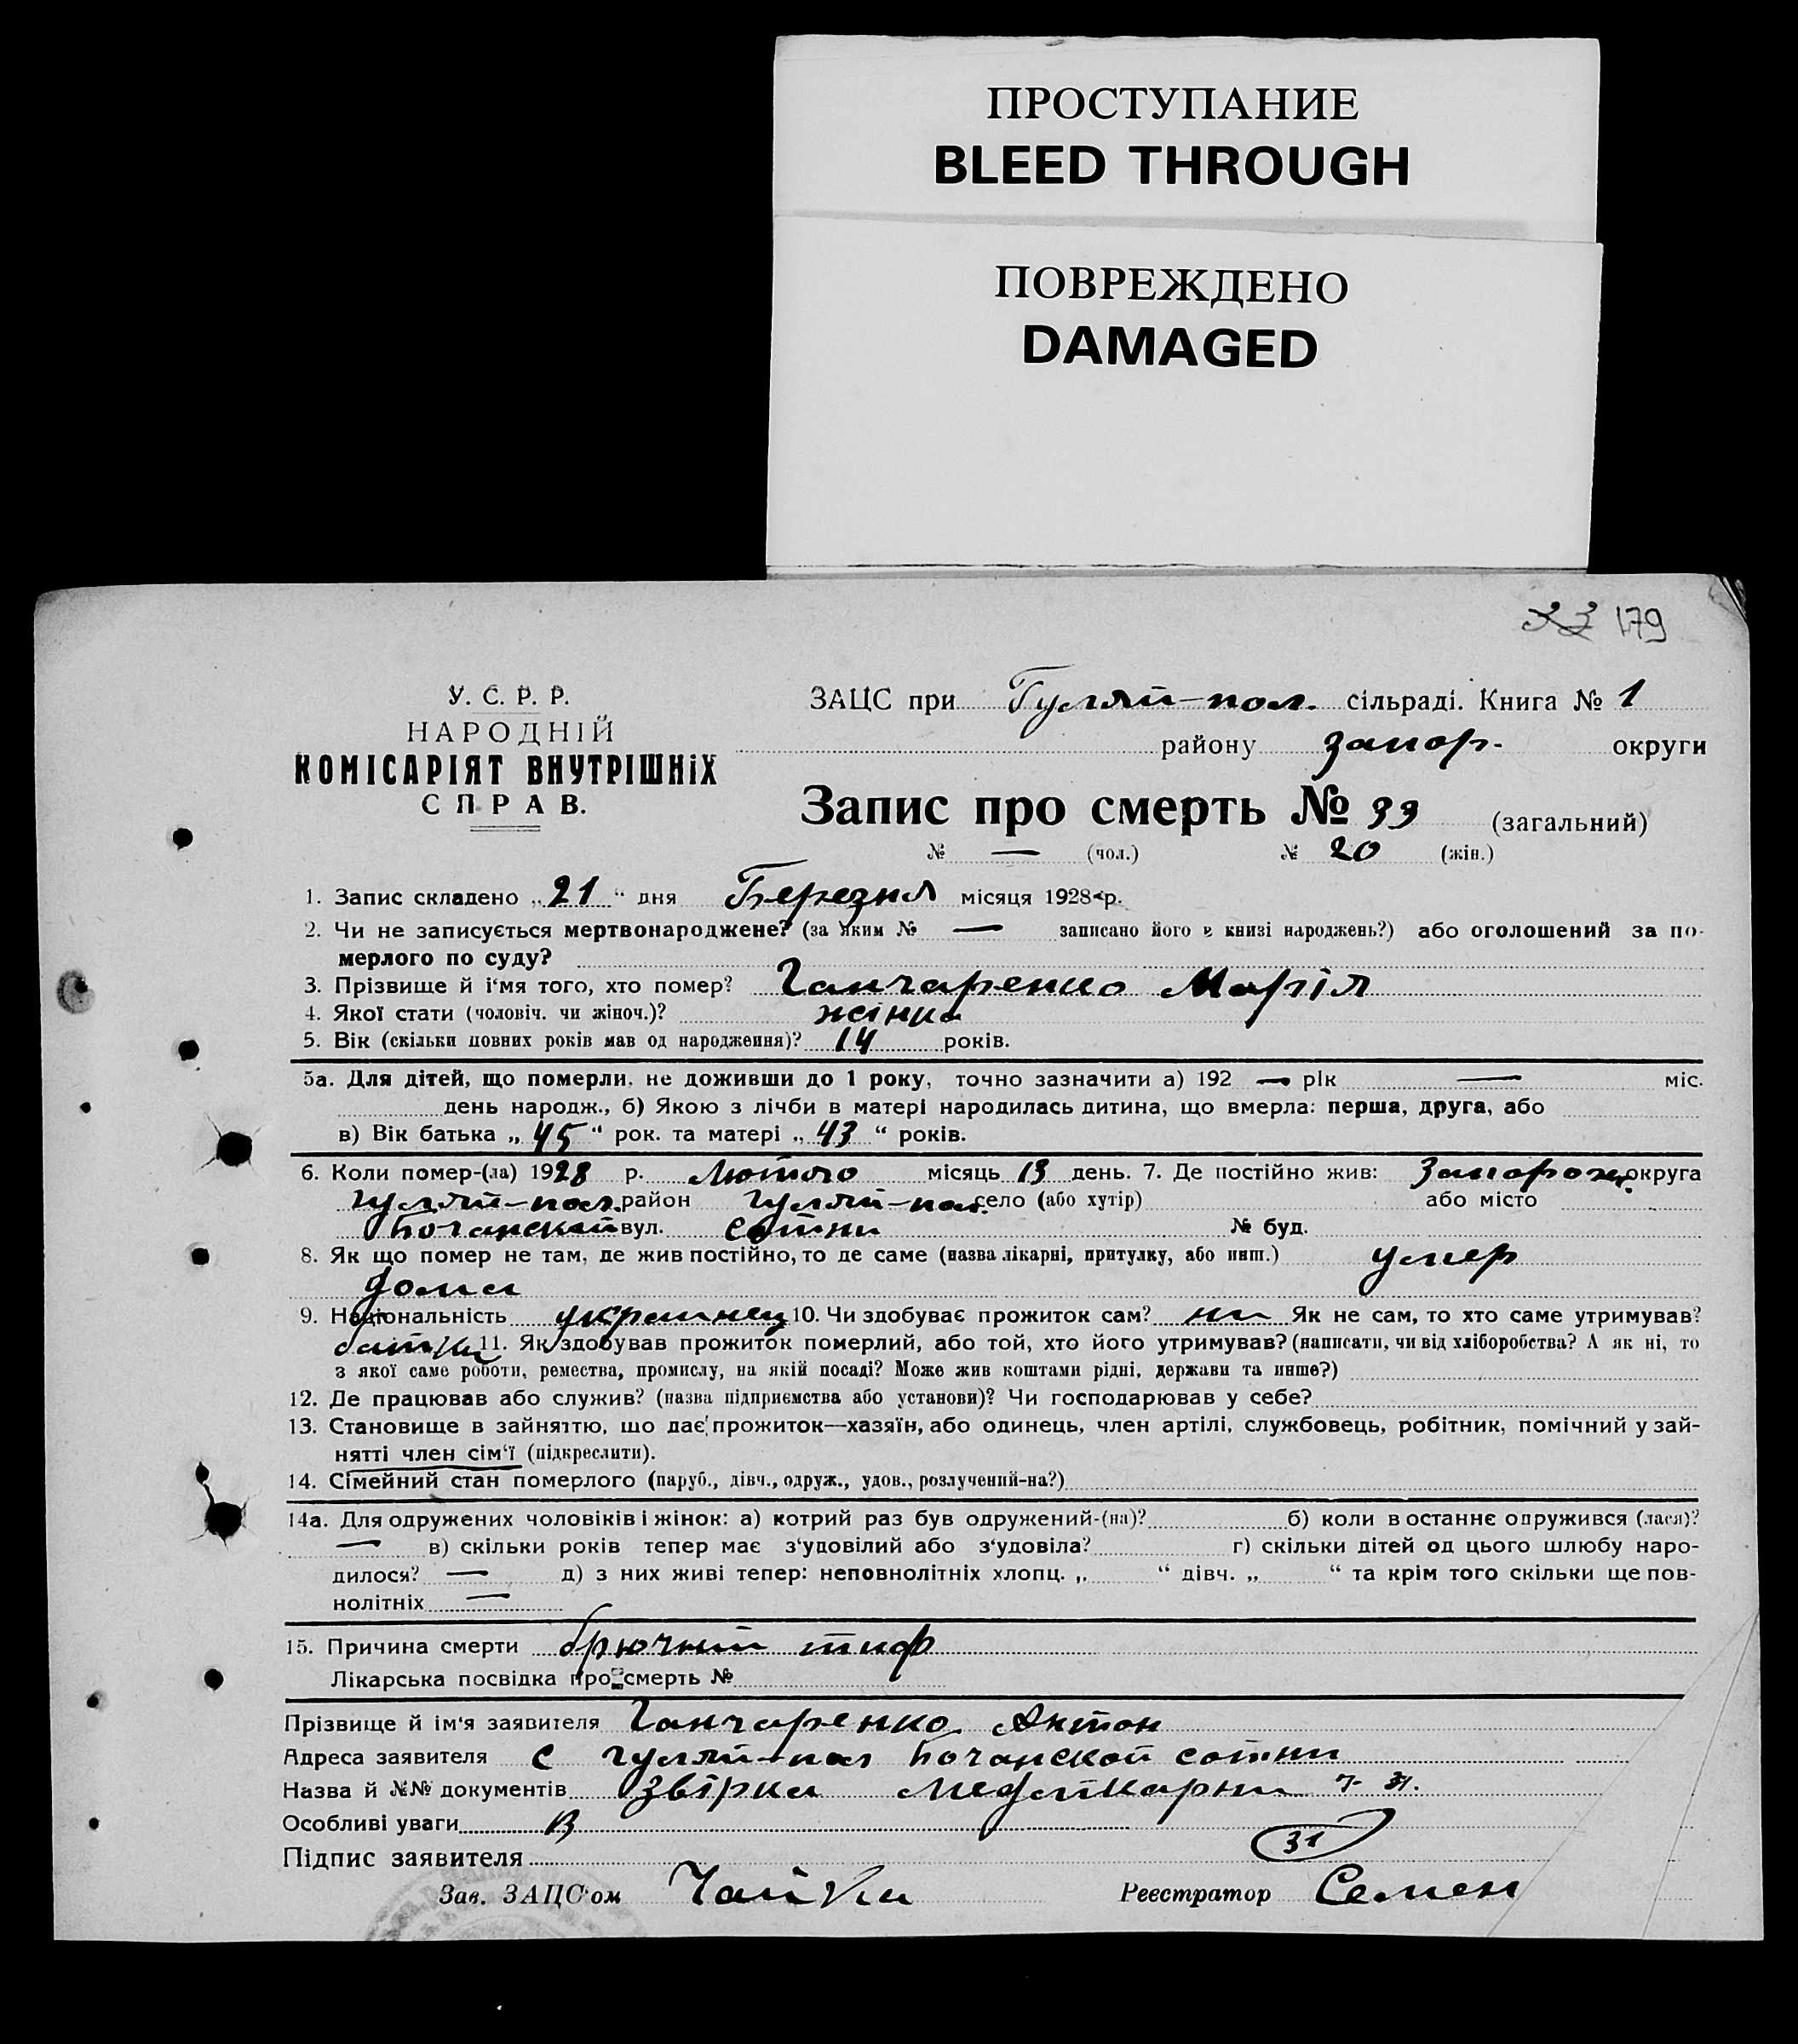 ПРОСТУПАНИЕ
BLEED THROUGH
ПОВРЕЖДЕНО
DAMAGED
33 179
У. С. Р. Р.
НАРОДНІЙ
КОМІСАРІЯТ ВНУТРІШНіХ
СПРАВ.
ЗАЦС при Гуляй-пол. сільраді. Книга № 1
району запор. округи
Запис про смерть № 39 (загальний)
№ — (чол.) № 20 (жін.)
1. Запис складено „21“ дня Березня місяця 1928 р.
2. Чи не записується мертвонароджене? (за яким № — записано його в книзі народжень?) або оголошений за по-
мерлого по суду?
3. Прізвище й і‘мя того, хто помер? Ганчаренко Марія
4. Якої стати (чоловіч. чи жіноч.)? жінка
5. Вік (скільки повних років мав од народження)? 14 років.
5а. Для дітей, що померли, не доживши до 1 року, точно зазначити а) 192 — рік — міс.
день народж., б) Якою з лічби в матері народилась дитина, що вмерла: перша, друга, або
в) Вік батька „45“ рок. та матері „43“ років.
6. Коли помер-(ла) 1928 р. Лютого місяць 13 день. 7. Де постійно жив: Запорож. округа
Гуляй-пол. район Гуляй-пол. село (або хутір) або місто
Бочанской вул. сотни № буд.
8. Як що помер не там, де жив постійно, то де саме (назва лікарні, притулку, або инш.) умер
дома
9. Національність украинец 10. Чи здобуває прожиток сам? ни Як не сам, то хто саме утримував?
батьки 11. Як здобував прожиток померлий, або той, хто його утримував? (написати, чи від хліборобства? А як ні, то
з якої саме роботи, ремества, промислу, на якій посаді? Може жив коштами рідні, держави та инше?)
12. Де працював або служив? (назва підприємства або установи)? Чи господарював у себе?
13. Становище в зайняттю, що дає прожиток—хазяїн, або одинець, член артілі, службовець, робітник, помічний у зай-
нятті член сім‘ї (підкреслити).
14. Сімейний стан померлого (паруб., дівч., одруж., удов., розлучений-на?)
14а. Для одружених чоловіків і жінок: а) котрий раз був одружений-(на)? б) коли в останнє одружився (лася)?
— в) скільки років тепер має з‘удовілий або з‘удовіла? г) скільки дітей од цього шлюбу наро-
дилося? — д) з них живі тепер: неповнолітніх хлопц. „ “ дівч. „ “ та крім того скільки ще пов-
нолітніх —
15. Причина смерти брючний тиф
Лікарська посвідка про смерть №
Прізвище й ім‘я заявителя Ганчаренко Антон
Адреса заявителя С гуляй-пол Бочанской сотни
Назва й №№ документів звірка
Особливі уваги В
31
Підпис заявителя
Зав. ЗАЦС‘ом Чайка Реєстратор Семен